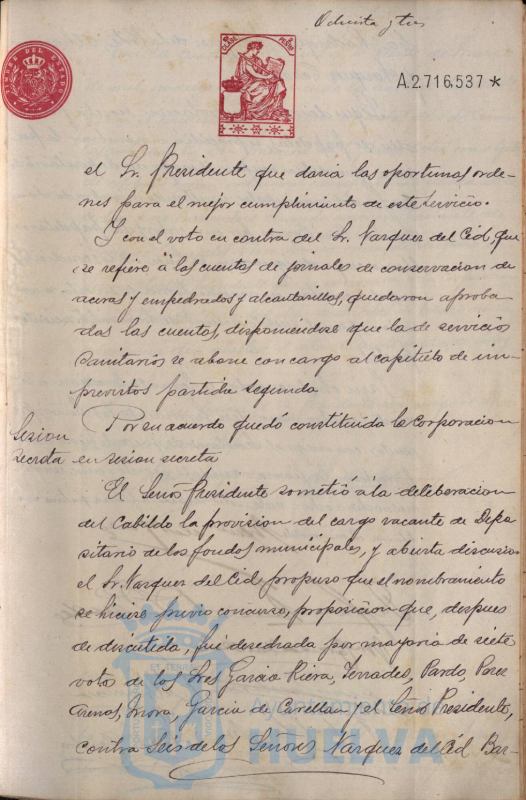 Ochenta y tres
A.2.716,537 *
el Sr. Presidente que daria las oportunas orde-
nes para el mejor cumplimiento de este servicio.
Y con el voto en contra del Sr. Vazquez del Cid, que
se refiere á las cuentas de jornales de conservacion de
aceras y empedrados y alcantarillas, quedaron aproba
das las cuentas, disponiéndose que la de servicios
sanitarios se abone con cargo al capitulo de im-
previstos partida segunda
Sesion
secreta
Por su acuerdo quedó constituida la Corporacion
en sesion secreta
El Señor Presidente sometió á la deliberacion
del Cabildo la provision del cargo vacante de Depo
sitario de los fondos municipales, y abierta discusion
el Sr. Vazquez del Cid propuso que el nombramiento
se hiciese previo concurso, proposicion que, despues
de discutida, fué desechada por mayoria de siete
voto de los Sres Garcia Riera, Terrades, Pardo, Perez
Mora, Garcia de Carellan y el Señor Presidente,
contra seis de los Señores Vazquez del Cid Bar-
HUELVA